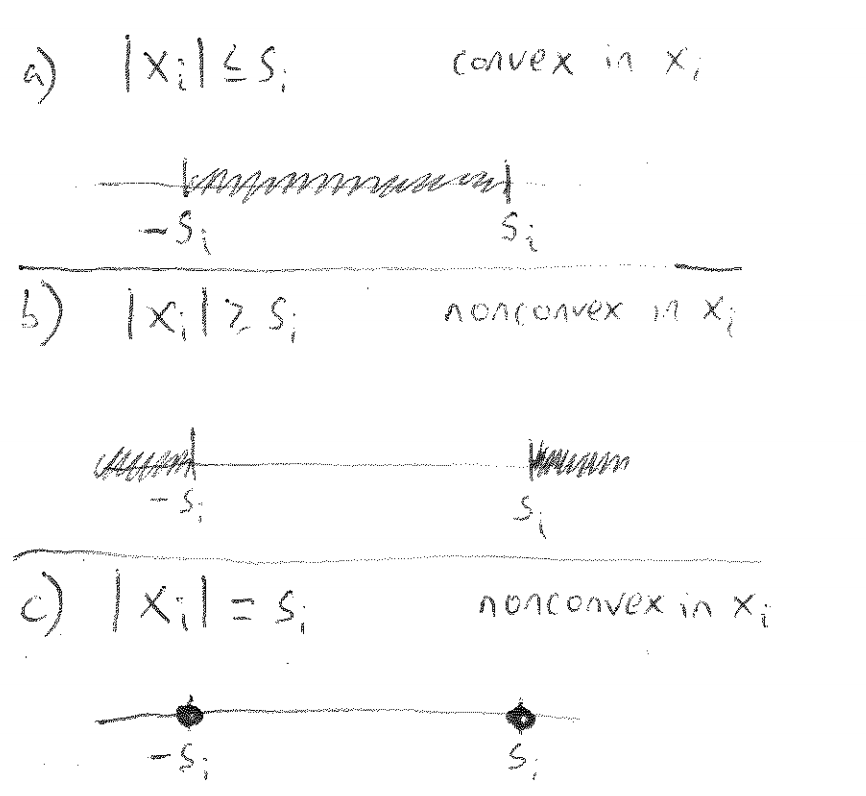 a) |xᵢ| ≤ sᵢ convex in xᵢ
-sᵢ sᵢ
b) |xᵢ| ≥ sᵢ nonconvex in xᵢ
-sᵢ sᵢ
c) |xᵢ| = sᵢ nonconvex in xᵢ
-sᵢ sᵢ